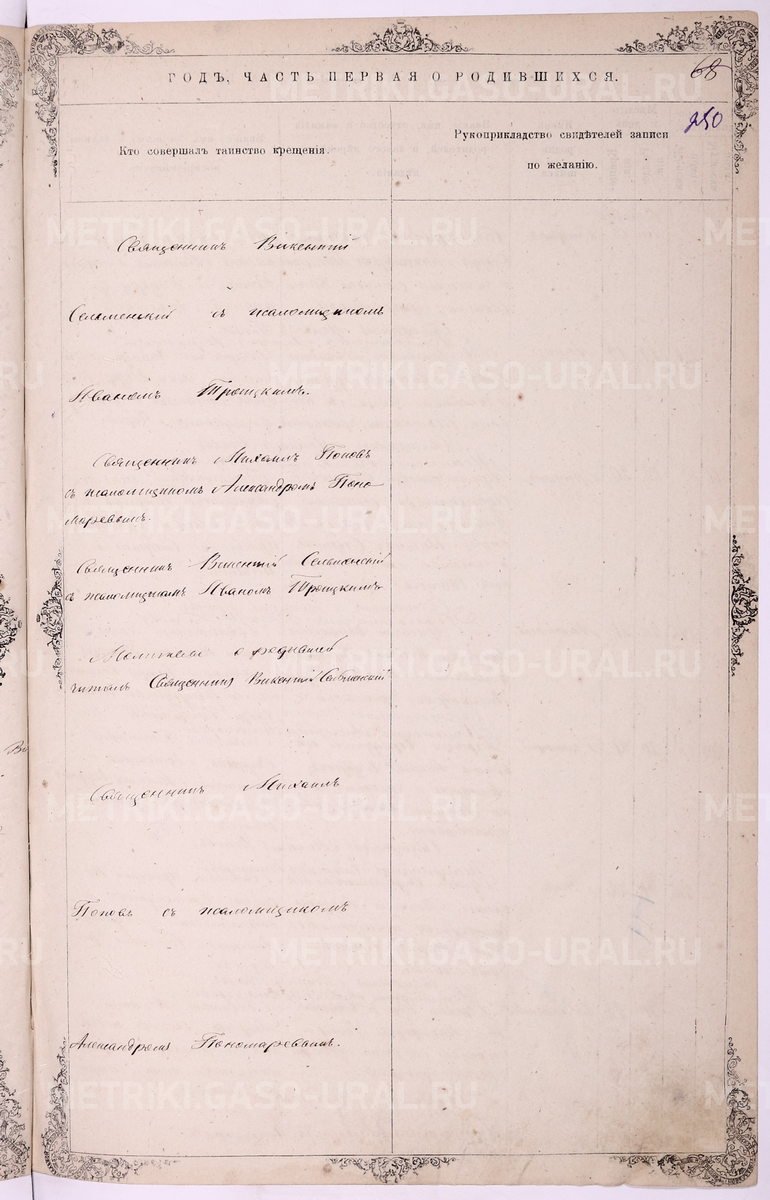 68
ГОДЪ, ЧАСТЬ ПЕРВАЯ О РОДИВШИХСЯ.
250
Кто совершалъ таинство крещенія.
Рукоприкладство свидѣтелей записи
по желанію.
Священникъ Викентій
Сельменскій съ псаломщикомъ
Иваномъ Троицкимъ.
Священникъ Михаилъ Поповъ
съ псаломщикомъ Александромъ Поно-
маревымъ.
Священникъ Викентій Сельменскій
съ псаломщикомъ Иваномъ Троицкимъ
Молитвы о родившей
читалъ Священникъ Викентій Сельменскій
Священникъ Михаилъ
Поповъ съ псаломщикомъ
Александромъ Пономаревымъ.
METRIKI.GASO-URAL.RU